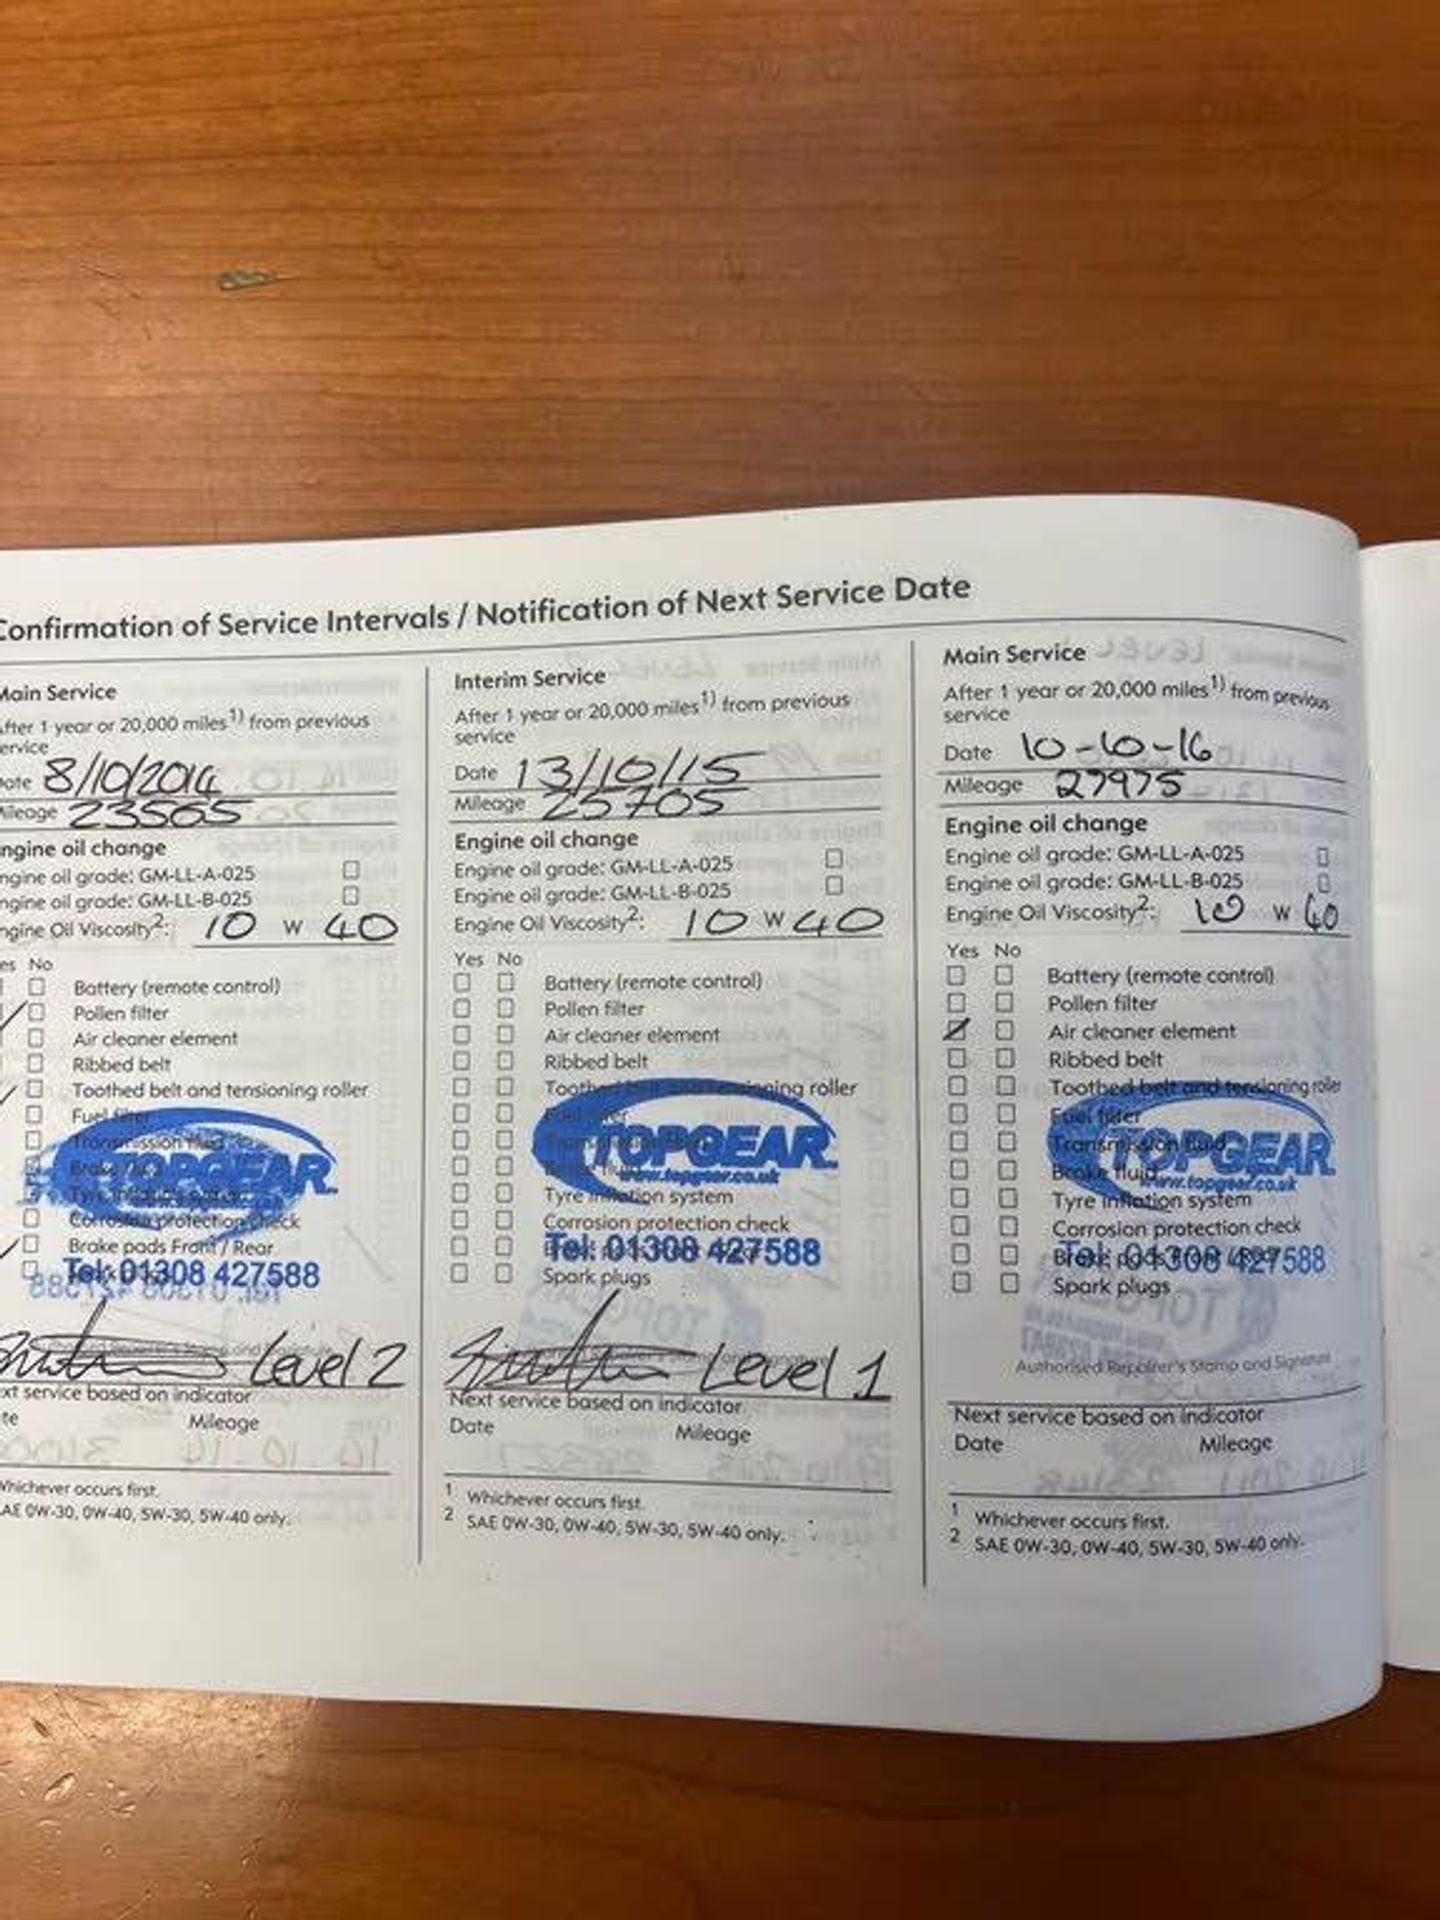 Confirmation of Service Intervals / Notification of Next Service Date
Main Service
After 1 year or 20,000 miles1) from previous
service
Date 8/10/2014
Mileage 23565
Engine oil change
Engine oil grade: GM-LL-A-025
Engine oil grade: GM-LL-B-025
Engine Oil Viscosity2: 10 W 40
Yes No
Battery (remote control)
Pollen filter
Air cleaner element
Ribbed belt
Toothed belt and tensioning roller
Fuel filter
Transmission fluid
Brake fluid
TOPGEAR
Corrosion protection check
Brake pads Front / Rear
Tel: 01308 427588
Level 2
Next service based on indicator
Date Mileage
Whichever occurs first.
SAE 0W-30, 0W-40, 5W-30, 5W-40 only.
Interim Service
After 1 year or 20,000 miles1) from previous
service
Date 13/10/15
Mileage 25705
Engine oil change
Engine oil grade: GM-LL-A-025
Engine oil grade: GM-LL-B-025
Engine Oil Viscosity2: 10 W 40
Yes No
Battery (remote control)
Pollen filter
Air cleaner element
Ribbed belt
Toothed belt and tensioning roller
Fuel filter
TOPGEAR
www.topgear.co.uk
Tyre inflation system
Corrosion protection check
Tel: 01308 427588
Spark plugs
Level 1
Next service based on indicator
Date Mileage
1 Whichever occurs first.
2 SAE 0W-30, 0W-40, 5W-30, 5W-40 only.
Main Service
After 1 year or 20,000 miles1) from previous
service
Date 10-10-16
Mileage 27975
Engine oil change
Engine oil grade: GM-LL-A-025
Engine oil grade: GM-LL-B-025
Engine Oil Viscosity2: 10 W 40
Yes No
Battery (remote control)
Pollen filter
Air cleaner element
Ribbed belt
Toothed belt and tensioning roller
Fuel filter
Transmission fluid
TOPGEAR
Brake fluid
www.topgear.co.uk
Tyre inflation system
Corrosion protection check
Tel: 01308 427588
Spark plugs
Authorised Repairer's Stamp and Signature
Next service based on indicator
Date Mileage
1 Whichever occurs first.
2 SAE 0W-30, 0W-40, 5W-30, 5W-40 only.